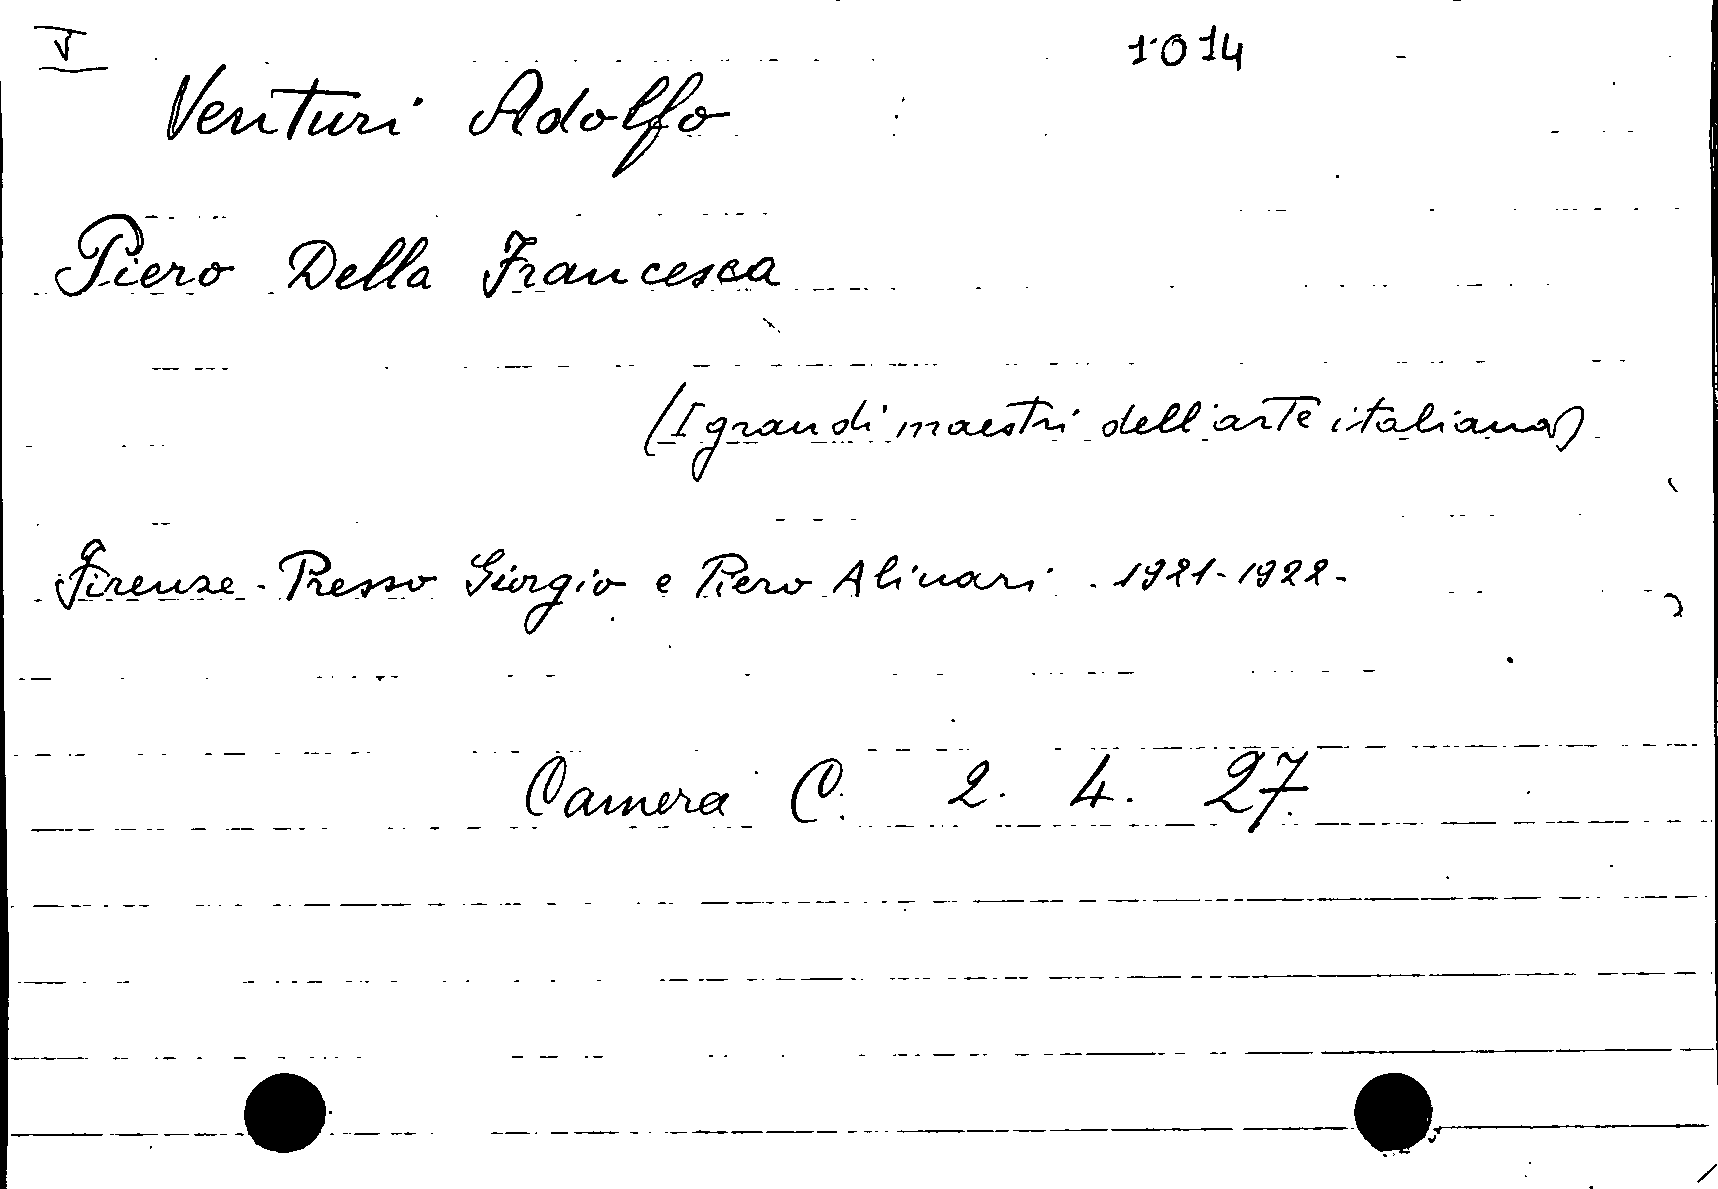 V
1014
Venturi Adolfo
Piero Della Francesca
(I grandi maestri dell'arte italiana)
Firenze - Presso Giorgio e Piero Alinari - 1921-1922-
Camera C. 2. 4. 27.